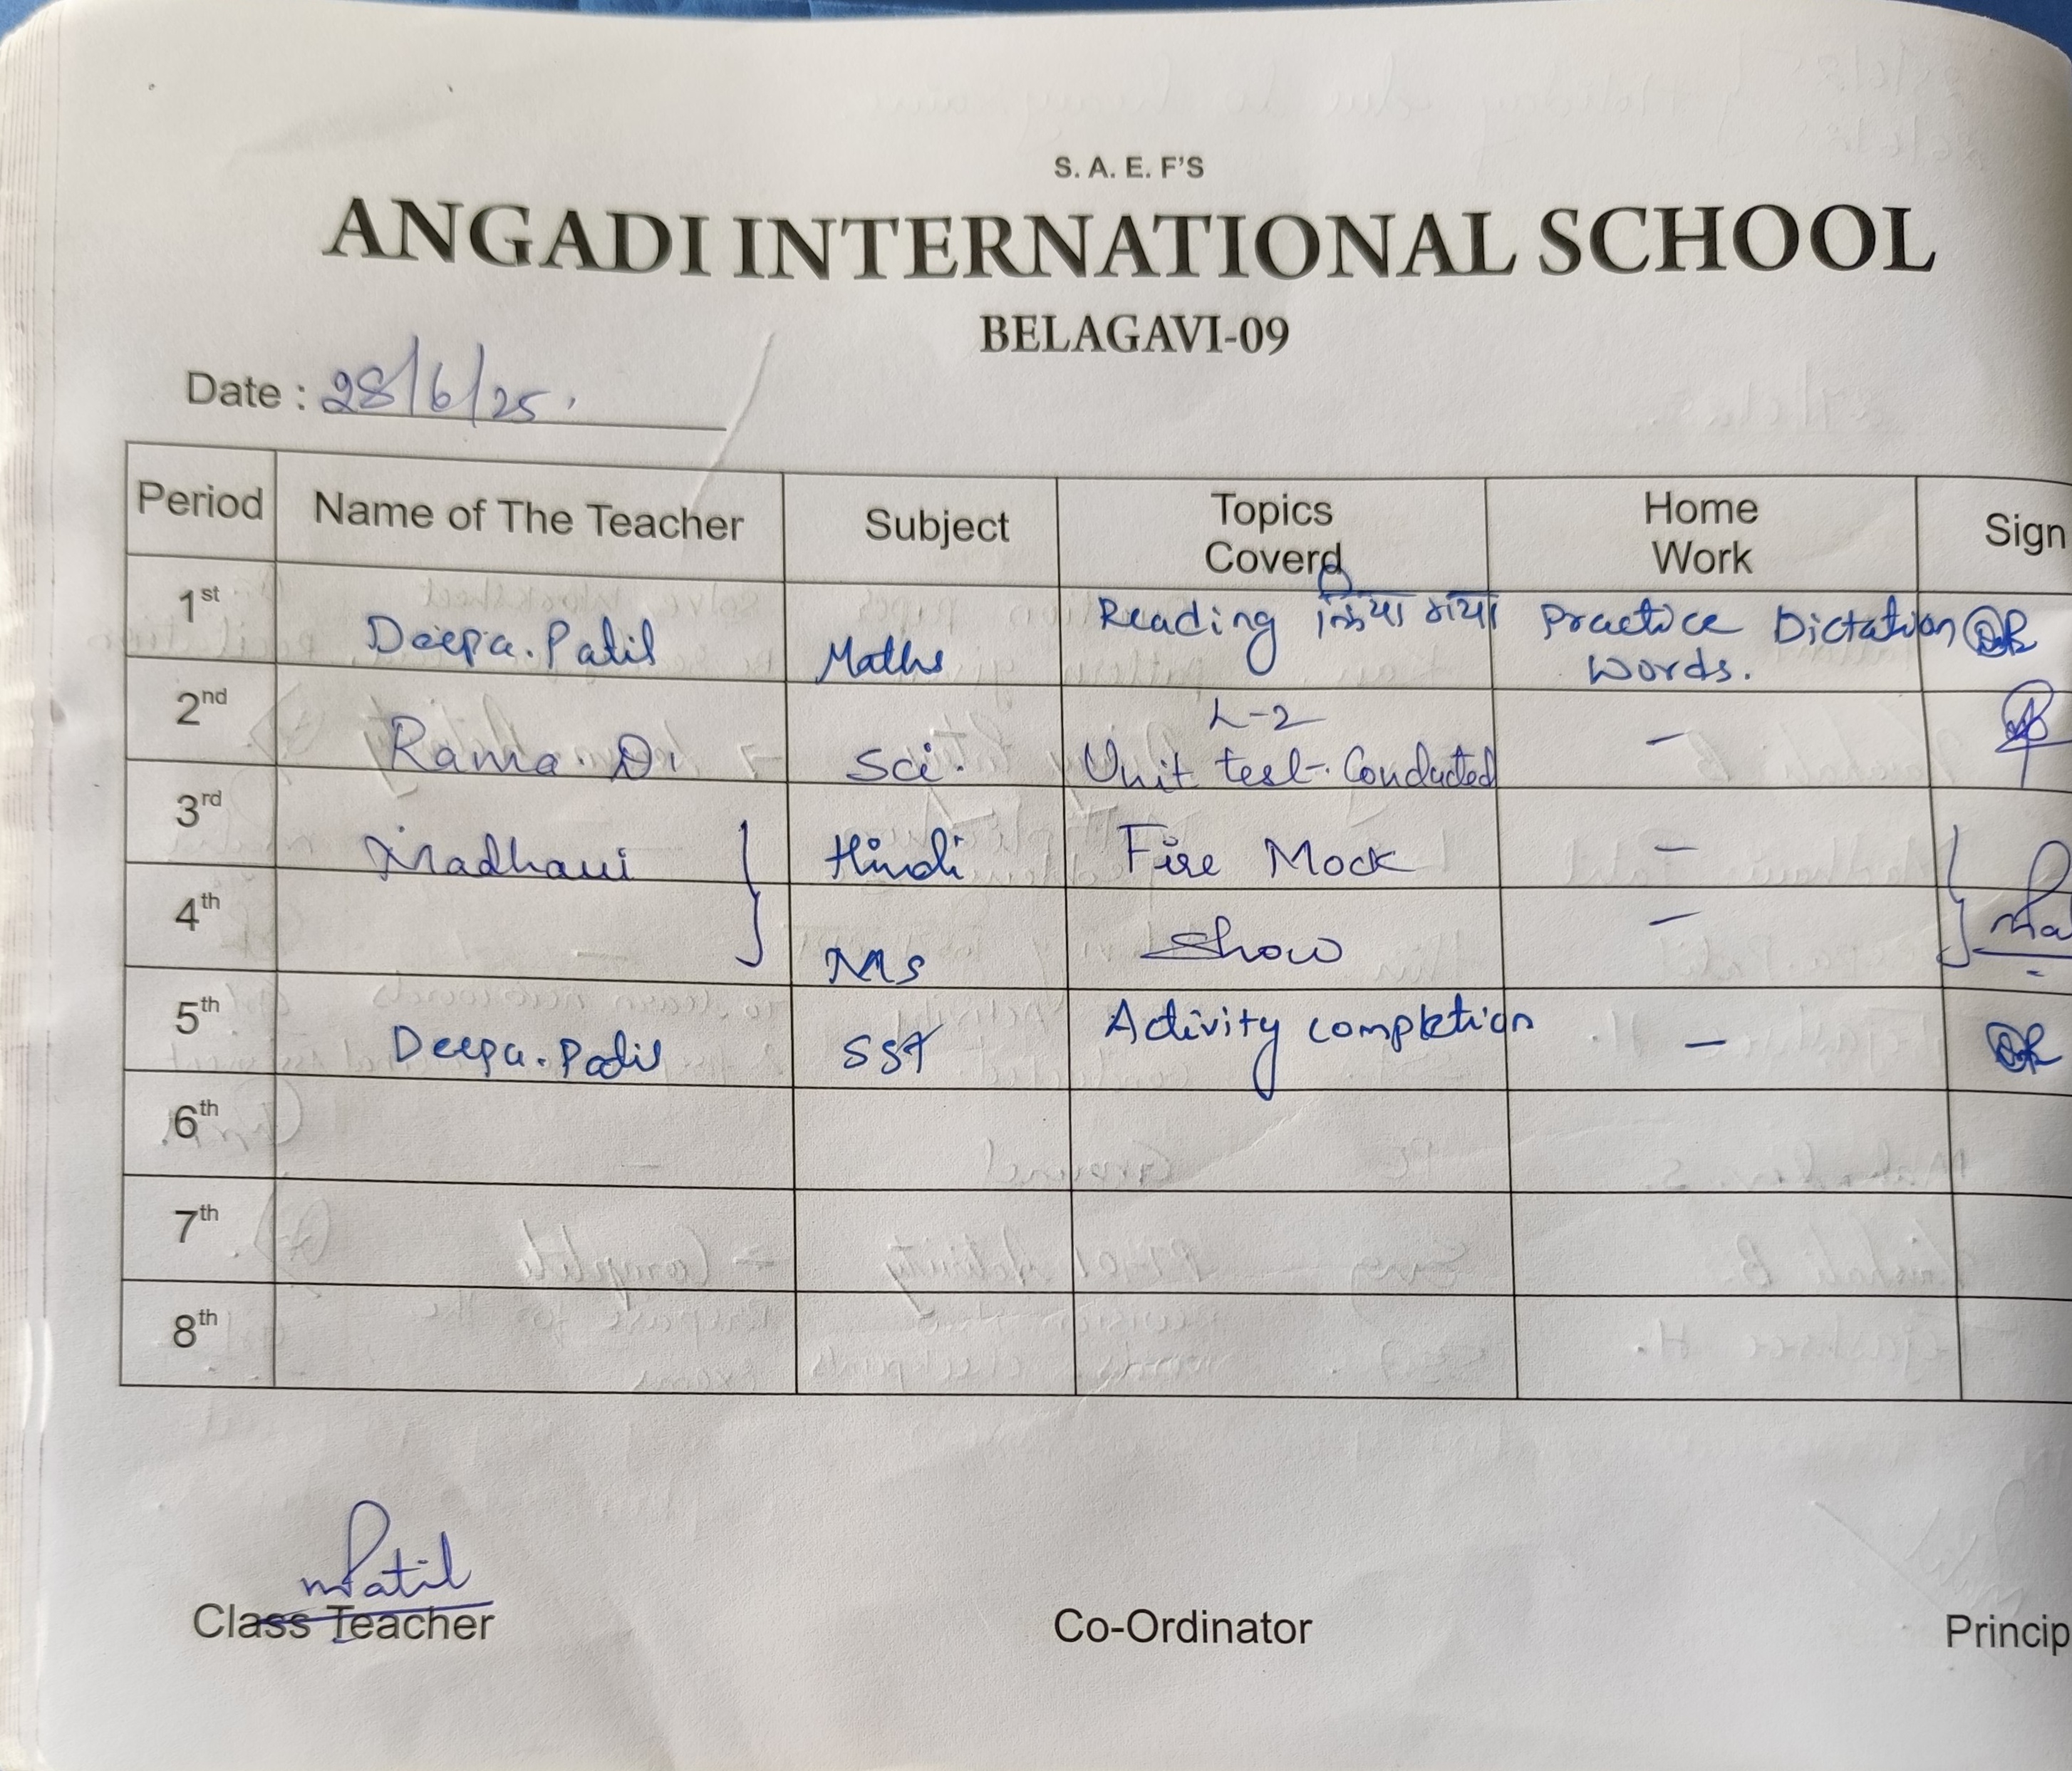 S. A. E. F'S
ANGADI INTERNATIONAL SCHOOL
BELAGAVI-09
Date : 28/6/25.
Period Name of The Teacher Subject Topics Coverd Home Work Sign
1st Deepa. Patil Maths Reading किया गया Practice Dictation words.
2nd Rama. D. Sci. L-2 Unit test. Conducted -
3rd Madhavi Hindi Fire Mock -
4th Ms Show -
5th Deepa. Patil SST Activity completion -
6th
7th
8th
mPatil
Class Teacher Co-Ordinator Princip